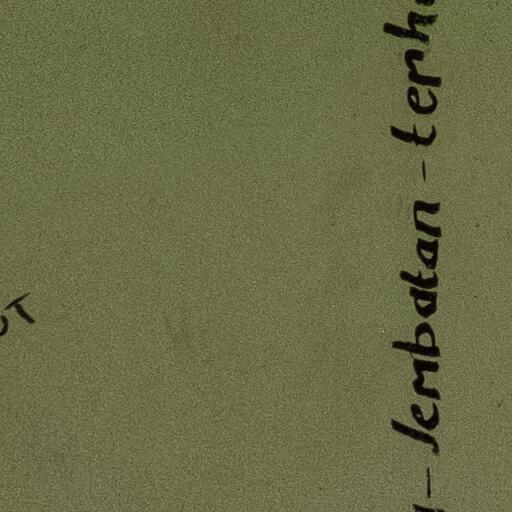 Jembatan - terh